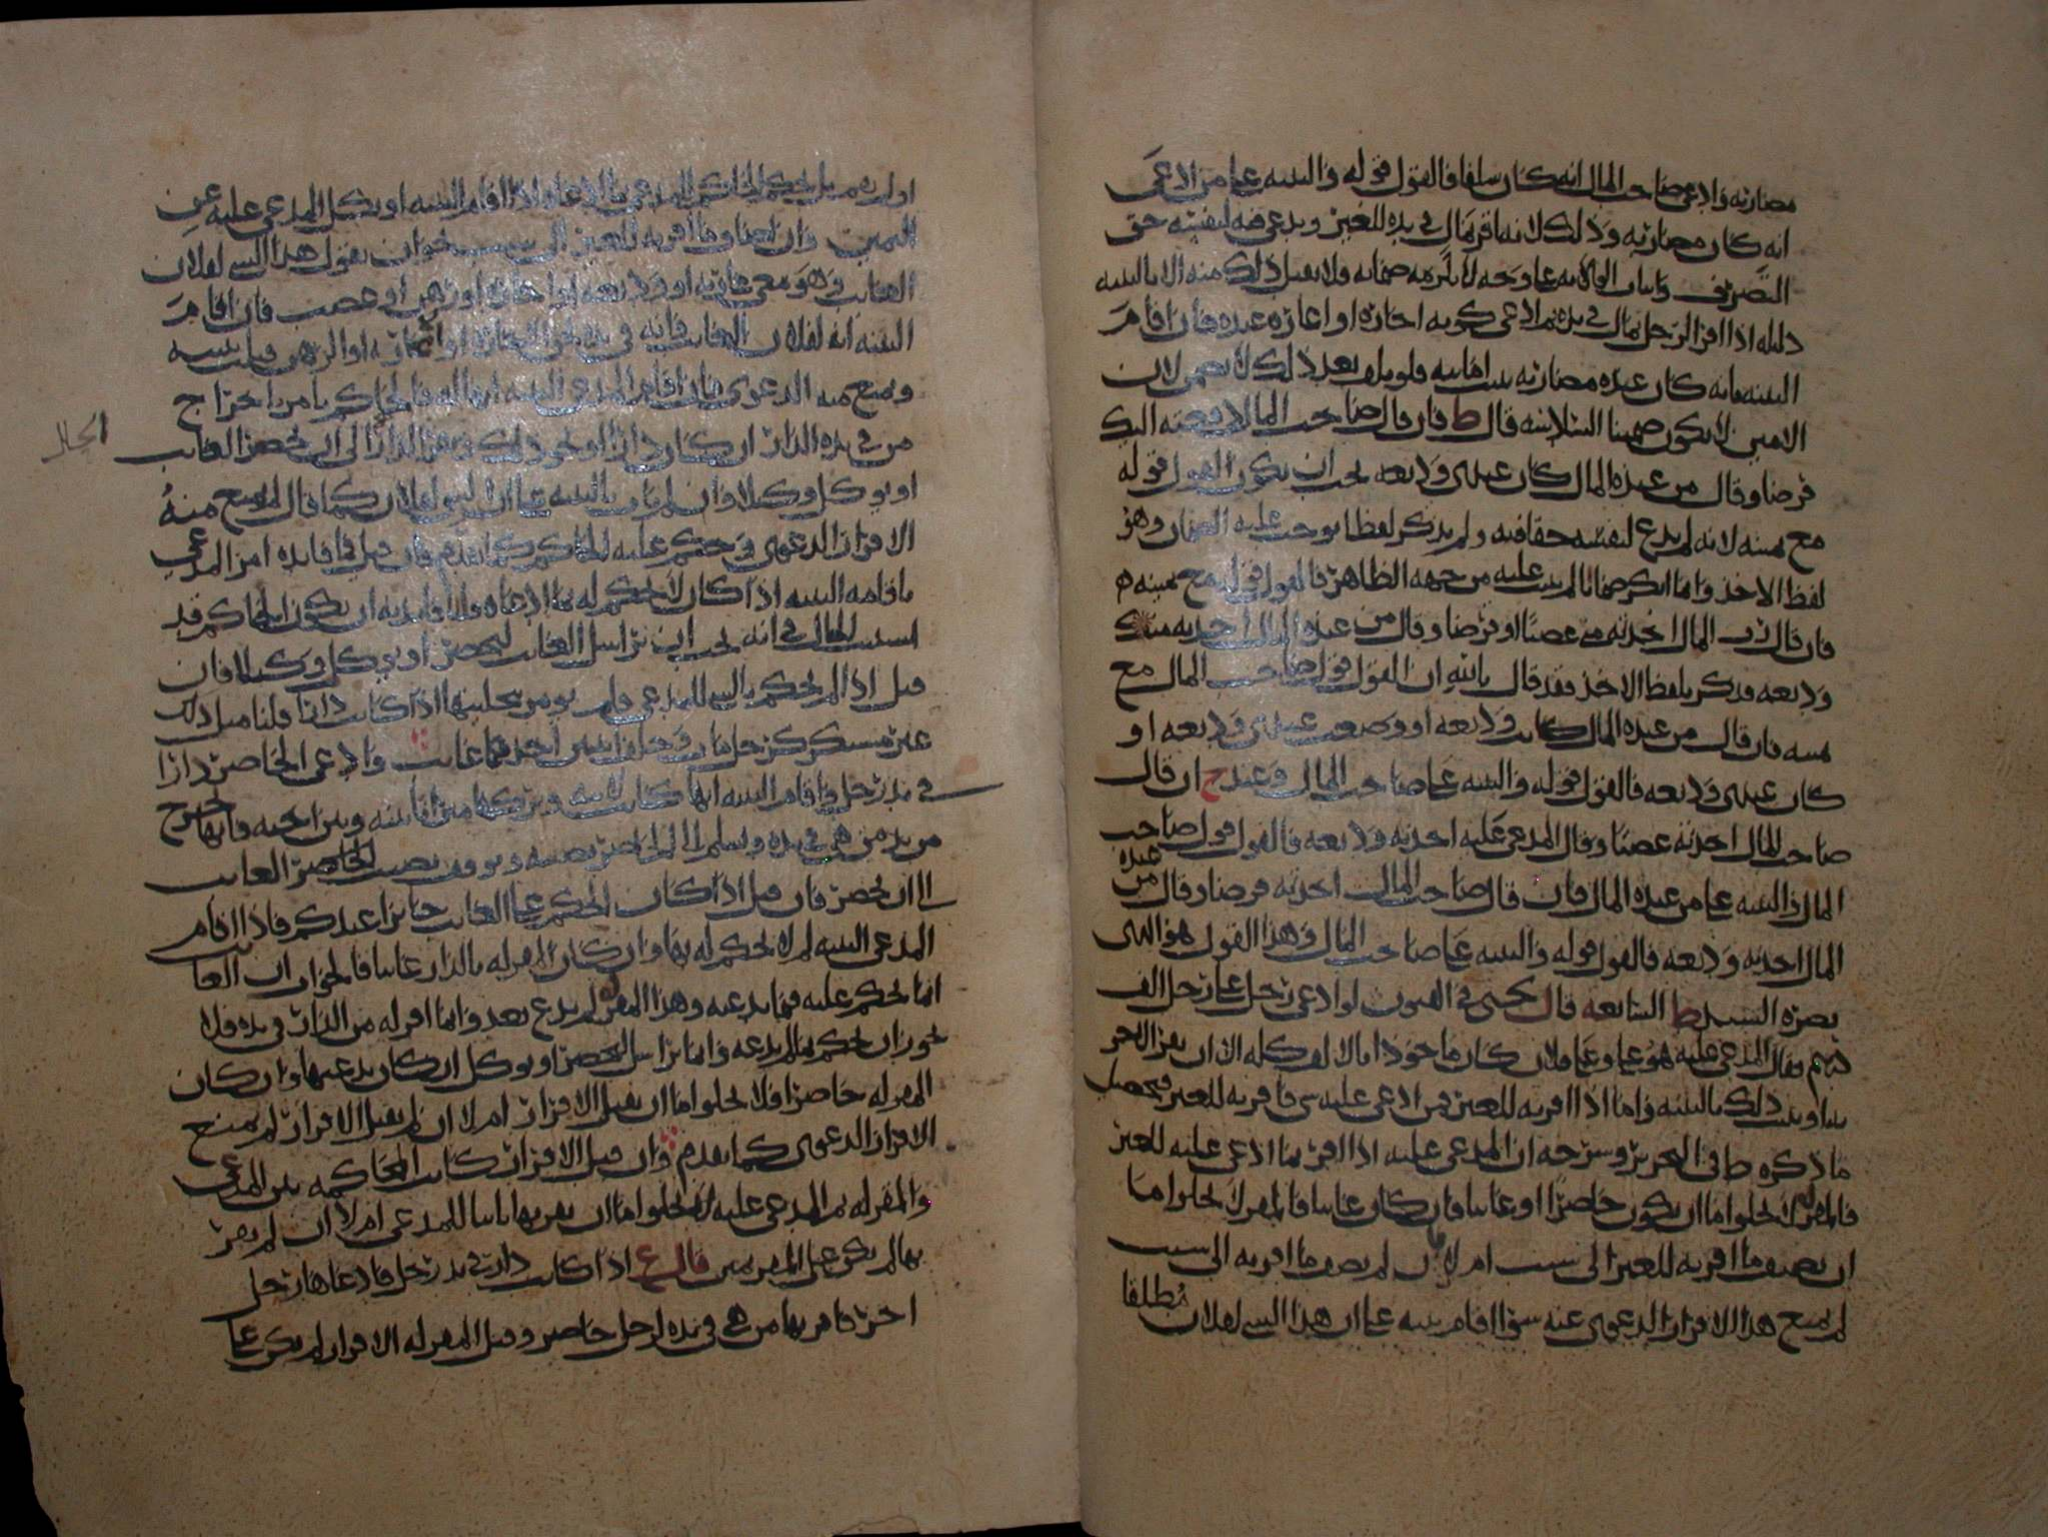 مضاربه وادعى صاحب المال انه كان سلفا فالقول قوله والبينه على من ادعى
انه كان مضاربه وذلك لانه اقر بمال في يده للغير ويدعي فيه لنفسه حق
التصرف واثبات الولايه على وجه لا يلزمه ضمانه ولا يقبل ذلك منه الا بالبينه
دليله اذا اقر الرجل بمال في يده ثم ادعى كونه اجاره او اعاره عنده فان اقام
البينه بانه كان عنده مضاربه ثبت امانته فلو تلف بعد ذلك لا يضمن لان
الامين لا يكون ضمينا قال ط فان قال صاحب المال دفعته اليك
قرضا وقال من عنده المال كان عندي وديعه يجب ان يكون القول قوله
مع يمينه لانه لم يدع لنفسه حقا فيه ولم يذكر لفظا يوجب عليه الضمان وهو
لفظ الاخذ وانما انكر ضمانا لم يثبت عليه من جهه الظاهر فالقول قوله مع يمينه
فان قال رب المال اخذته مني غصبا او قرضا وقال من عنده المال اخذته منك
وديعه فذكر بلفظ الاخذ فقد قال بالله ان القول قول صاحب المال مع
يمينه فان قال من عنده المال كانت وديعه او وضعت عندي وديعه او
كان عندي وديعه فالقول قوله والبينه على صاحب المال وعند ح ان قال
صاحب المال اخذته غصبا وقال المدعى عليه اخذته وديعه فالقول قول صاحب
المال والبينه على من عنده المال فان قال صاحب المال اخذته قرضا وقال من عنده
المال اخذته وديعه فالقول قوله والبينه على صاحب المال وهذا القول هو الذي
نصره السيد ط السابعه قال يحيى في الفنون لو ادعى رجل على رجل الف
درهم فقال المدعى عليه هو علي وعلى فلان كان ماخوذا بالالف كله الا ان يقر الاخر
او يثبت ذلك بالبينه واما اذا اقر به للغير فمن ادعي عليه شي فاقر به للغير فتحصيل
ما ذكره ط في التحرير وشرحه ان المدعى عليه اذا اقر بما ادعي عليه للغير
فالمقر له لا يخلو اما ان يكون حاضرا او غائبا فان كان غائبا فالمقر لا يخلو اما
ان يضيف ما اقر به للغير الى سبب ام لا فان لم يضف ما اقر به الى سبب
لم يمنع هذا الاقرار الدعوى عنه سوا اقام بينه على ان هذا الشي لفلان مطلقا
او لم يقم بل يحكم الحاكم للمدعي بما ادعاه اذا اقام البينه او نكل المدعى عليه عن
اليمين وان اضاف ما اقر به للغير الى سبب نحو ان يقول هذا الشي لفلان
الغائب وهو معي عاريه او وديعه او اجاره او رهن او غصب فان اقام
البينه انه لفلان الغائب وانه في يده على الاجاره او العاريه او الرهن قبلت بينته
ومنع منه الدعوى فان اقام المدعي البينه انها له فالحاكم يامر باخراج
من في يده الدار ان كان دارا او نحو ذلك من هذا الدار الى ان يحضر الغائب
او يوكل وكيلا وان لم يات بالبينه على ان الشي لفلان كما قال لم يمنع منه
الاقرار الدعوى وحكم عليه الحاكم كما تقدم فان قيل فما فائده امر المدعي
باقامه البينه اذا كان لا يحكم له بما ادعاه قلنا فائدته ان يكون الحاكم قد
استثبت الحال في انه يجب ان يراسل الغائب ليحضر او يوكل وكيلا فان
قيل اذا لم يحكم بالشي للمدعي فلم يومر بتخليتها اذا كانت دارا قلنا مثل ذلك
غير مستنكر كرجل مات وخلف ابنين احدهما غائب وادعى الحاضر دارا
في يد رجل واقام البينه انها كانت لابيه وتركها ميراثا بينه وبين اخيه فانها تخرج
من يد من هي في يده ويسلم الى الحاضر نصيبه ويوقف نصيب الحاضر الغائب
الى ان يحضر فان قيل اذا كان الحكم على الغائب جائزا عندكم فاذا اقام
المدعي البينه لم لا يحكم له بها وان كان المقر له بالدار غائبا فالجواب ان الغائب
انما يحكم عليه فيما يدعيه وهذا المقر له لم يدع بعد وانما اقر له من الدار في يده فلا
يجوز ان يحكم بما لم يدعه وانما يراسل ليحضر او يوكل ان كان يدعيها وان كان
المقر له حاضرا فلا يخلو اما ان يقبل الاقرار ام لا ان لم يقبل الاقرار لم يمنع
الاقرار الدعوى كما تقدم وان قبل الاقرار كانت المحاكمه بين المدعي
والمقر له ثم المدعى عليه لا يخلو اما ان يقر بها ثانيا للمدعي ام لا ان لم يقر
بها لم يكن على المقر يمين قال ع اذا كانت دار في يد رجل فادعاها رجل
اخر فاقر بها من هي في يده لرجل حاضر وقبل المقر له الاقرار لم يكن على